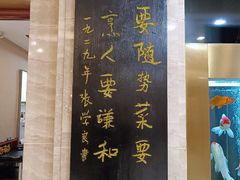 要随势菜要
烹人要謙和
一九二九年 张学良書